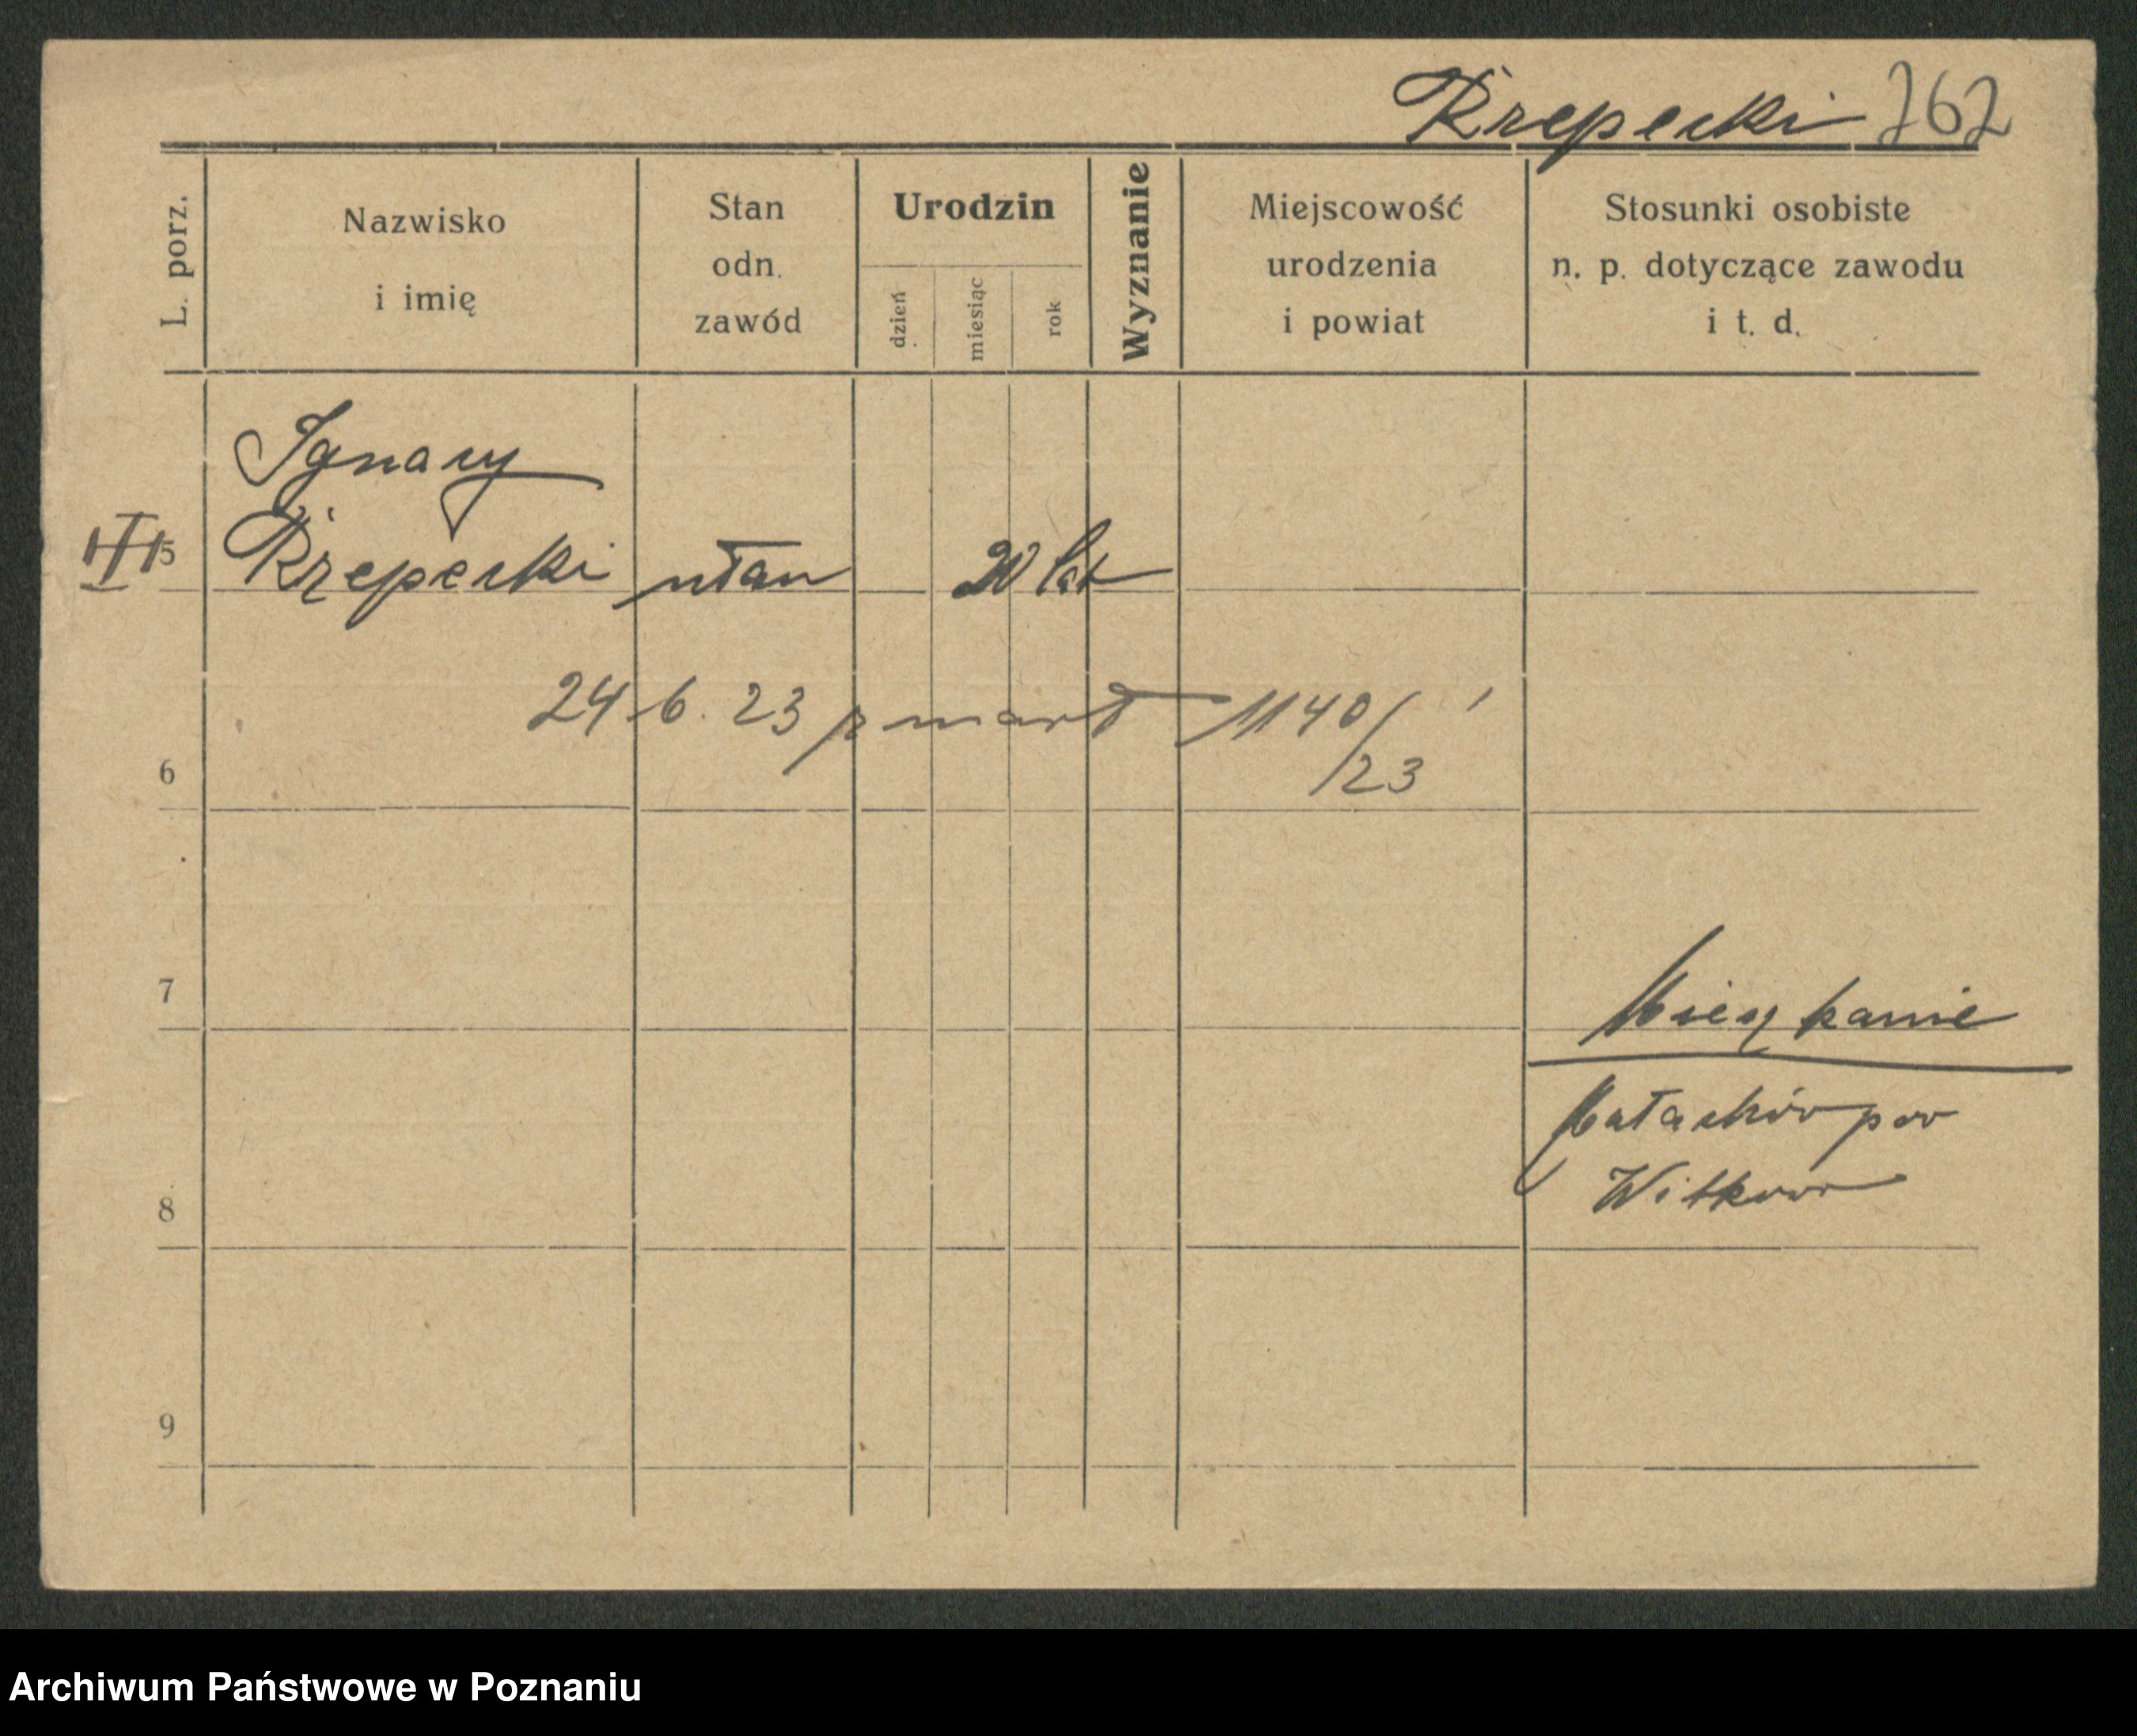 Rzepecki 262
L. porz.
Nazwisko
i imię
Stan
odn.
zawód
Urodzin
dzień
miesiąc
rok
Wyznanie
Miejscowość
urodzenia
i powiat
Stosunki osobiste
n. p. dotyczące zawodu
i t. d.
Ignacy
5 Rzepecki ułan 20 lat
24 6. 23 zmarł 1140/
/23
6
7
Mieszkanie
Małachów pow
Witkowo
8
9
Archiwum Państwowe w Poznaniu